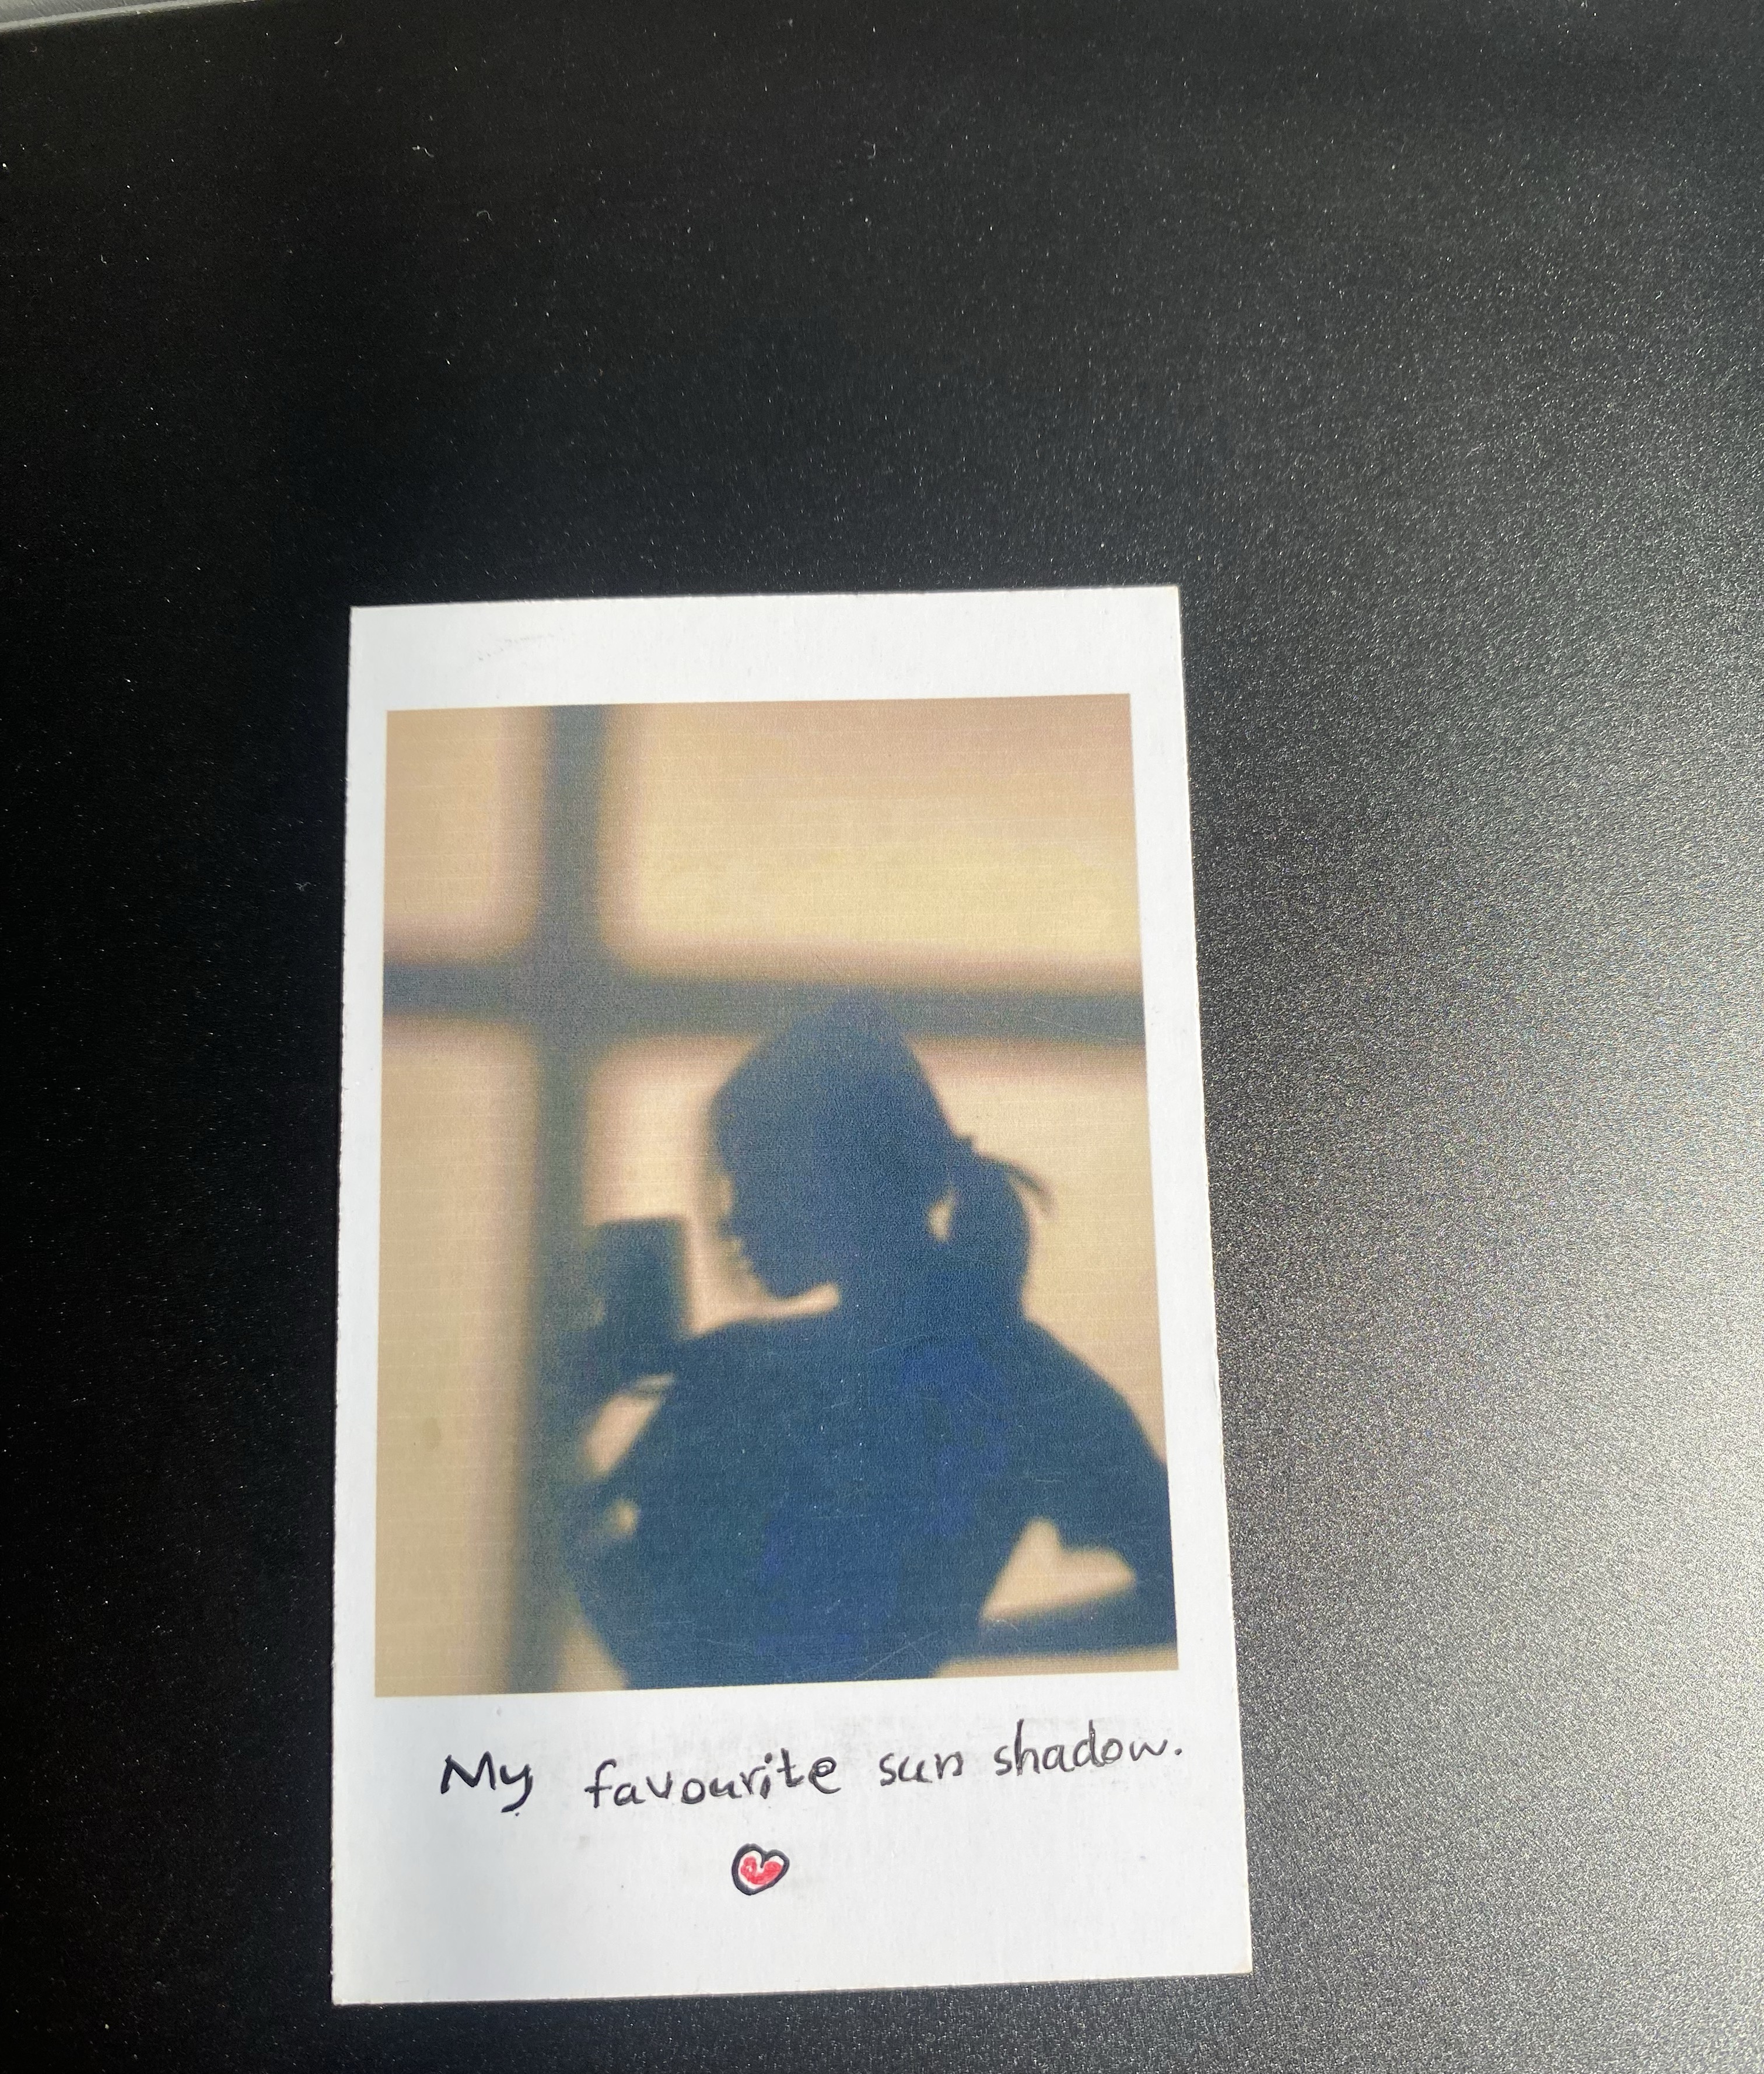 My favourite sun shadow.